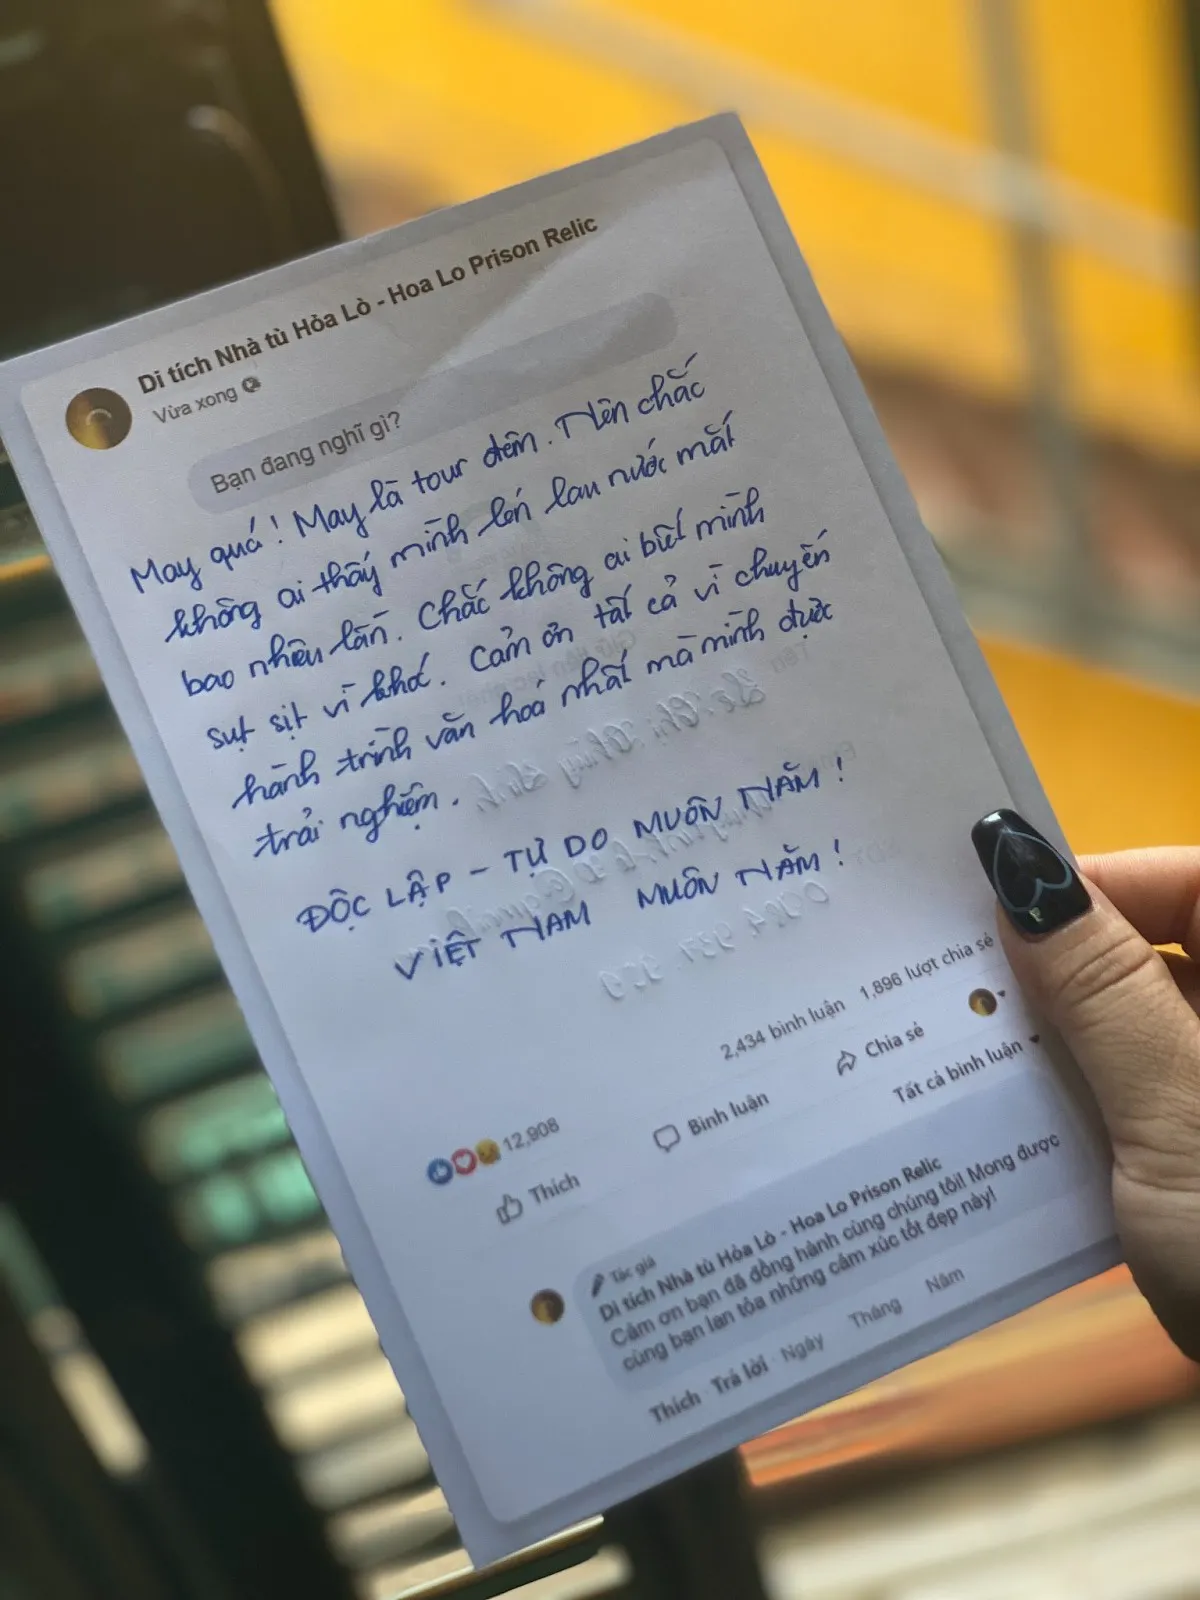 Di tích Nhà tù Hỏa Lò - Hoa Lo Prison Relic
Vừa xong
Bạn đang nghĩ gì?
May quá! May là tour đêm. Nên chắc
không ai thấy mình lén lau nước mắt
bao nhiêu lần. Chắc không ai biết mình
sụt sịt vì khó. Cảm ơn tất cả vì chuyến
hành trình văn hoá nhất mà mình được
trải nghiệm.
ĐỘC LẬP - TỰ DO MUÔN NĂM!
VIỆT NAM MUÔN NĂM!
2,434 bình luận 1,896 lượt chia sẻ
12,908
Thích Bình luận Chia sẻ
Tất cả bình luận
Tác giả
Di tích Nhà tù Hỏa Lò - Hoa Lo Prison Relic
Cảm ơn bạn đã đồng hành cùng chúng tôi! Mong được
cùng bạn lan tỏa những cảm xúc tốt đẹp này!
Thích · Trả lời · Ngày Tháng Năm